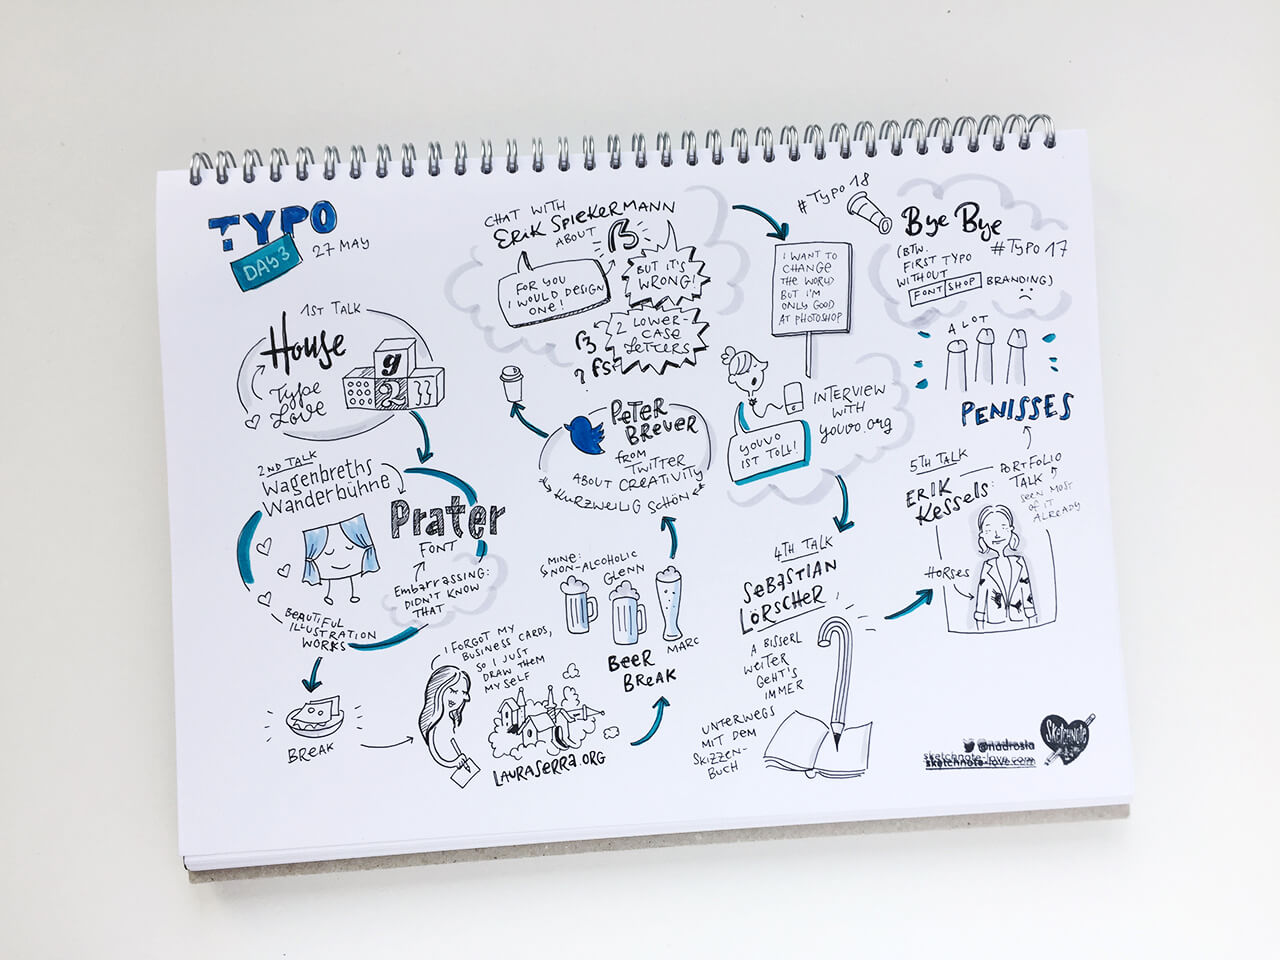 TYPO
DAY 3
27 MAY
1ST TALK
House
Type
Love
g
2
2ND TALK
Wagenbreths
Wanderbühne
Prater
FONT
Embarrassing:
DIDN'T KNOW
THAT
BEAUTIFUL
ILLUSTRATION
WORKS
BREAK
I FORGOT MY
BUSINESS CARDS,
SO I JUST
DRAW THEM
MYSELF
LAURASERRA.ORG
MINE:
NON-ALCOHOLIC
GLENN
MARC
BEER
BREAK
PETER
BREUER
FROM
TWITTER
ABOUT CREATIVITY
KURZWEILIG SCHÖN
CHAT WITH
ERIK SPIEKERMANN
ABOUT
ß
FOR YOU
I WOULD DESIGN
ONE!
BUT IT'S
WRONG!
2 LOWER-
CASE
LETTERS
I WANT TO
CHANGE
THE WORLD
BUT I'M
ONLY GOOD
AT PHOTOSHOP
INTERVIEW
WITH
youvo.org
YOUVO
IST TOLL!
4TH TALK
SEBASTIAN
LÖRSCHER
A BISSERL
WEITER
GEHT'S
IMMER
UNTERWEGS
MIT DEM
SKIZZEN-
BUCH
5TH TALK
ERIK
KESSELS:
PORTFOLIO
TALK
SEEN MOST
OF IT
ALREADY
HORSES
A LOT
PENISSES
#TYPO 18
Bye Bye
#TYPO 17
(BTW.
FIRST TYPO
WITHOUT
FONT SHOP BRANDING)
@nadrosia
sketchnote-love.com
Sketchnote